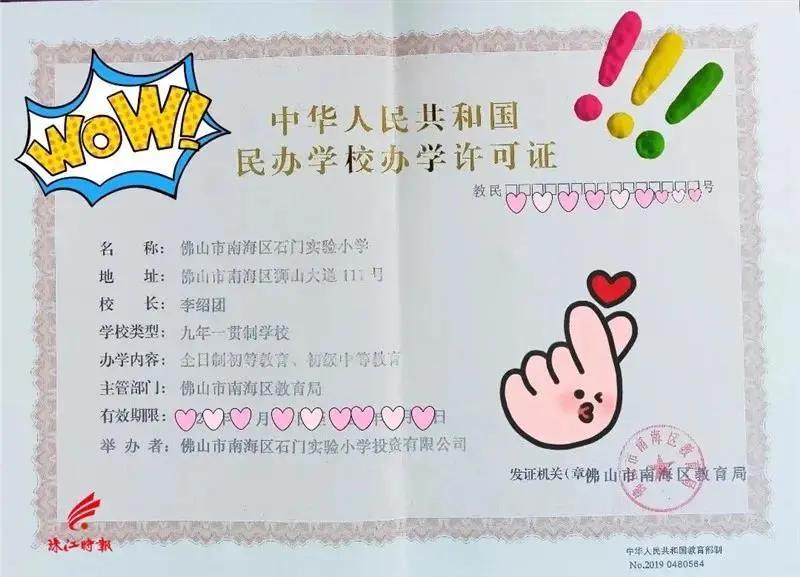 WOW!
中华人民共和国
民办学校办学许可证
教民 号
名 称： 佛山市南海区石门实验小学
地 址： 佛山市南海区狮山大道111号
校 长： 李绍团
学校类型： 九年一贯制学校
办学内容： 全日制初等教育、初级中等教育
主管部门： 佛山市南海区教育局
有效期限： 2 年 月 日
举 办 者： 佛山市南海区石门实验小学投资有限公司
发证机关（章） 佛山市南海区教育局
佛山市南海区教育局
珠江時報
中华人民共和国教育部制
No.2019 0480564